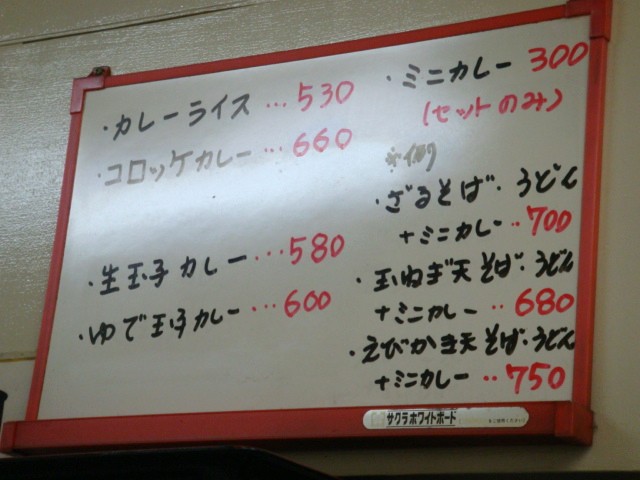 ・カレーライス…530
・コロッケカレー…660
・生玉子カレー…580
・ゆで玉子カレー…600
・ミニカレー 300
(セットのみ)
・ざるそば・うどん
+ミニカレー‥700
・玉ねぎ天そば・うどん
+ミニカレー‥680
・えびかき天そば・うどん
+ミニカレー‥750
サクラホワイトボード